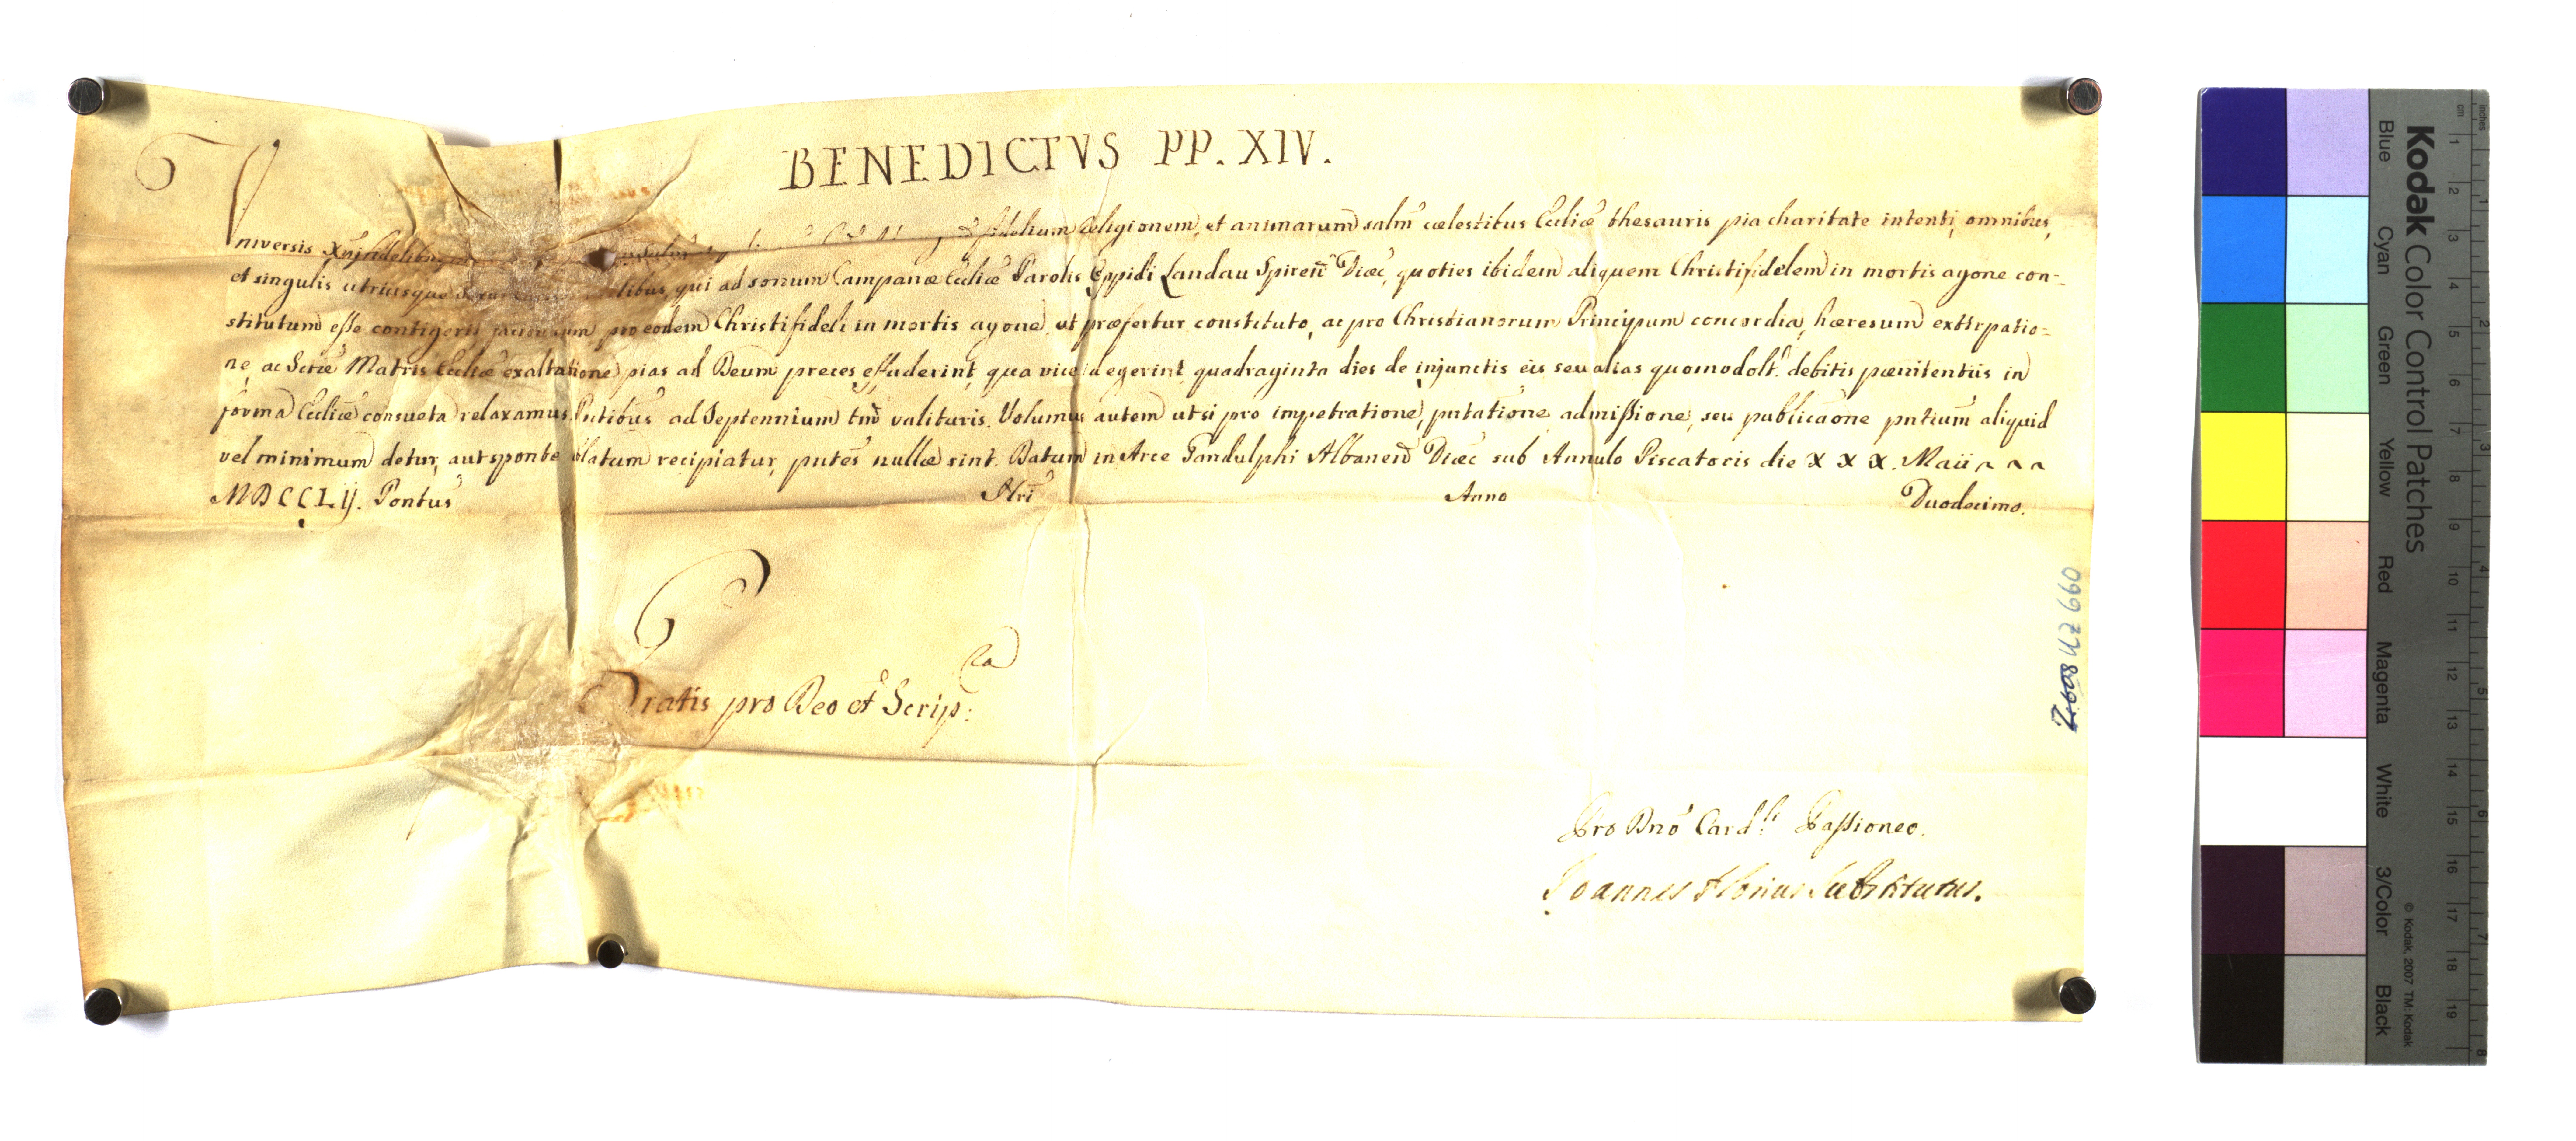 BENEDICTVS PP. XIV.
Vniversis Xpĩfidelibus fidelium religionem, et animarum salm̃ cœlestibus Eccliæ thesauris pia charitate intenti, omnibus,
et singulis utriusque qui ad sonum Campanæ Eccliæ Parolis Oppidi Landau Spireñ Diœc̃, quoties ibidem aliquem Christifidelem in mortis agone con-
stitutum esse contigerit pro eodem Christifideli in mortis agone, ut præfertur constituto, ac pro Christianorum Principum concordia, hæresum extirpatio-
ne, ac Sctæ Matris Ecclæ exaltatione pias ad Deum preces effuderint, qua vice id egerint quadraginta dies de injunctis eis seu alias quomodolt. debitis pœnitentiis in
forma Ecclæ consueta relaxamus. Pntibus ad Septennium tm̃ valituris. Volumus autem ut si pro impetratione, pntatione, admissione, seu publicaone pntium aliquid
vel minimum detur, aut sponte oblatum recipiatur, pntes nullæ sint. Datum in Arce Gandulphi Albaneñ Diœc sub Annulo Piscatoris die X X X. Maii
MDCCLIJ. Pontus Nri Anno Duodecimo.
Gratis pro Deo et Scrip:ra
Pro Dno Card.li Passioneo.
Joannes Florius Substitutus.
Z 608 UZ 660
Kodak Color Control Patches
Blue Cyan Green Yellow Red Magenta White 3/Color Black
© Kodak, 2007 TM: Kodak
cm 1 2 3 4 5 6 7 8 9 10 11 12 13 14 15 16 17 18 19
inches 1 2 3 4 5 6 7 8